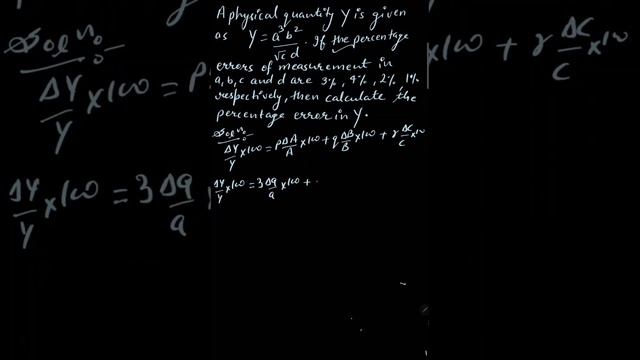 A physical quantity Y is given
as Y = a³b² / √c d . If the percentage
errors of measurement in
a, b, c and d are 3%, 4%, 2%, 1%
respectively, then calculate the
percentage error in Y.
Solⁿ
ΔY/Y ×100 = pΔA/A ×100 + qΔB/B ×100 + rΔC/C ×100
ΔY/Y ×100 = 3Δa/a ×100 +